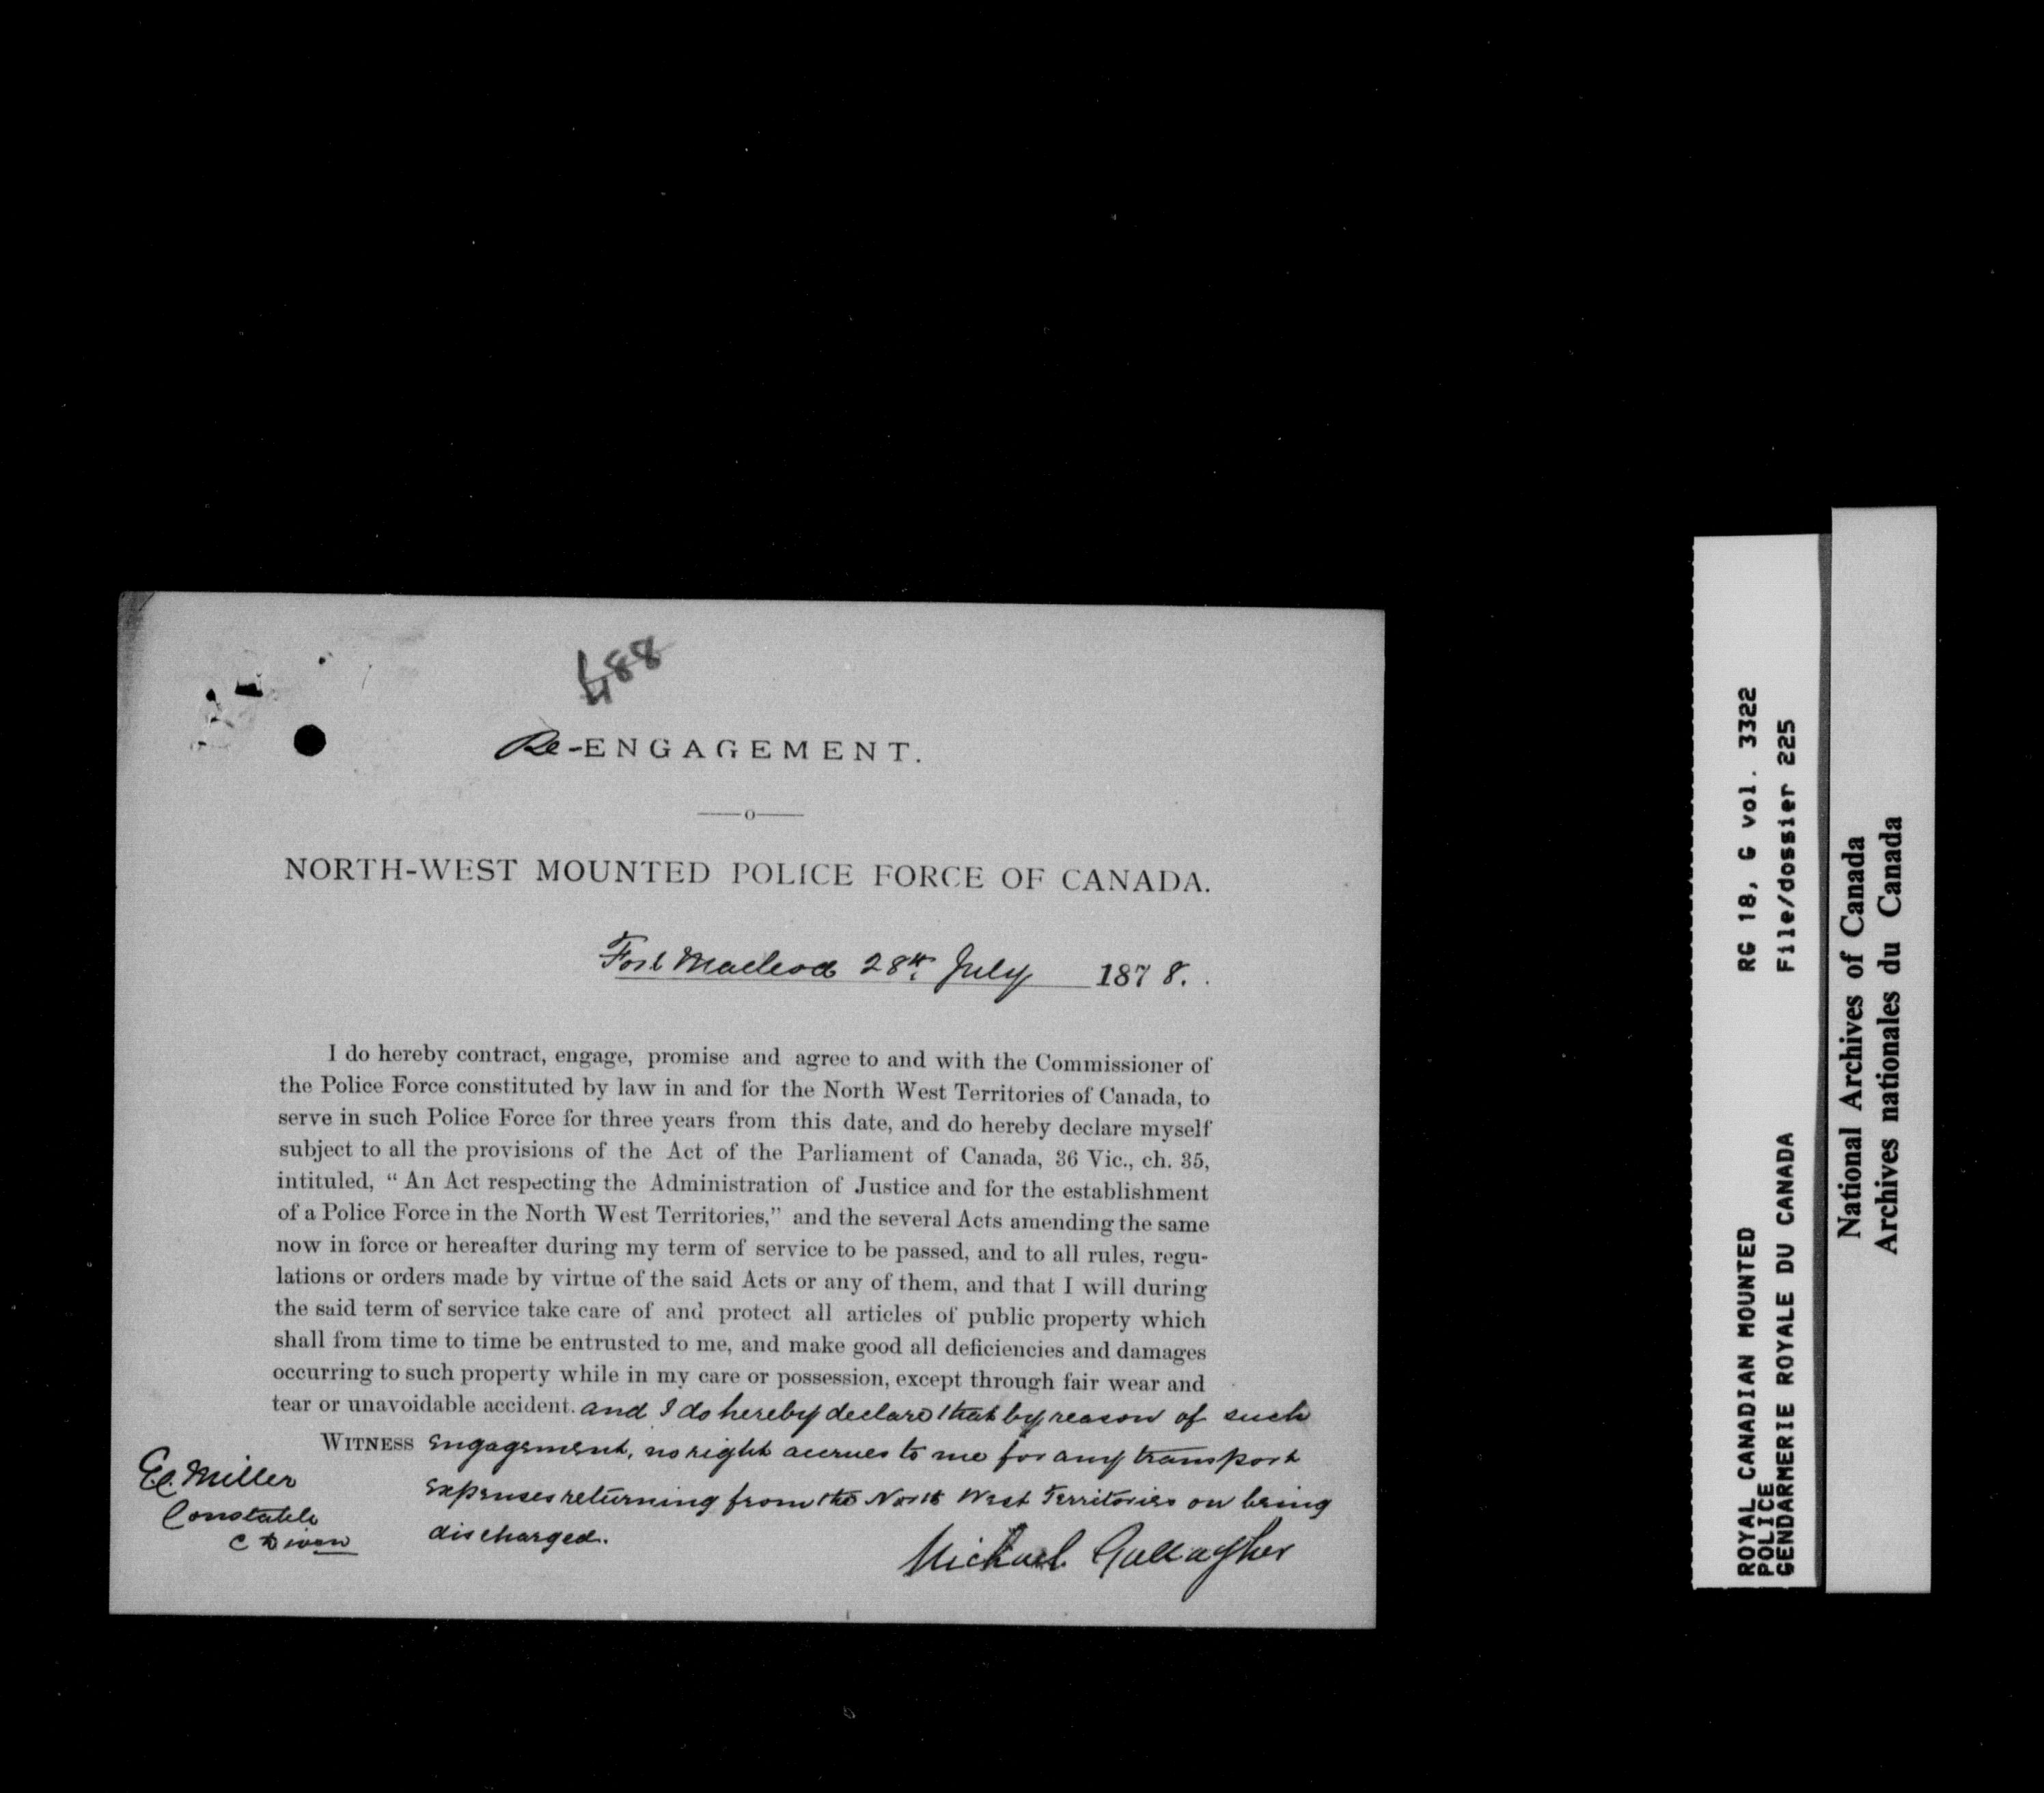 488
Re-ENGAGEMENT.
NORTH-WEST MOUNTED POLICE FORCE OF CANADA.
Fort Macleod 28th July 1878.
I do hereby contract, engage, promise and agree to and with the Commissioner of
the Police Force constituted by law in and for the North West Territories of Canada, to
serve in such Police Force for three years from this date, and do hereby declare myself
subject to all the provisions of the Act of the Parliament of Canada, 36 Vic., ch. 35,
intituled, “ An Act respecting the Administration of Justice and for the establishment
of a Police Force in the North West Territories,” and the several Acts amending the same
now in force or hereafter during my term of service to be passed, and to all rules, regu-
lations or orders made by virtue of the said Acts or any of them, and that I will during
the said term of service take care of and protect all articles of public property which
shall from time to time be entrusted to me, and make good all deficiencies and damages
occurring to such property while in my care or possession, except through fair wear and
tear or unavoidable accident. and I do hereby declare that by reason of such
WITNESS engagement, no right accrues to me for any transport
expenses returning from the North West Territories on being
discharged.
E.C. Miller
Constable
C Divon
Michael Gallagher
ROYAL CANADIAN MOUNTED
POLICE
GENDARMERIE ROYALE DU CANADA
RG 18, G vol. 3322
File/dossier 225
National Archives of Canada
Archives nationales du Canada